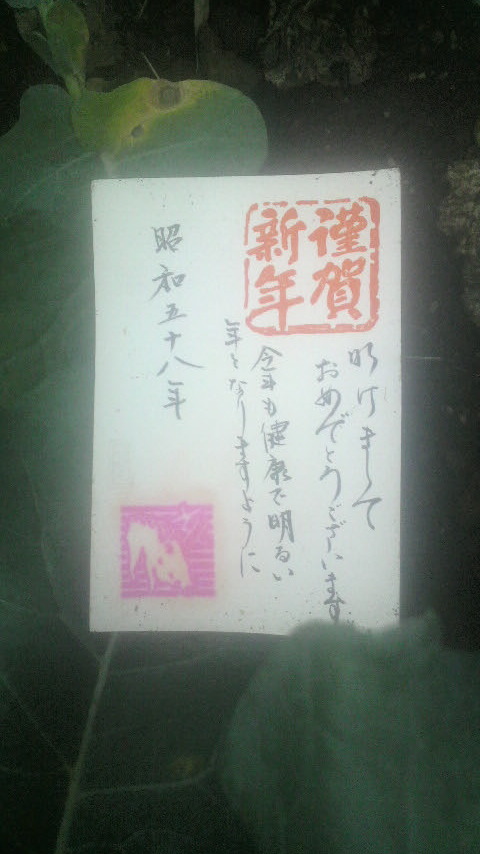 謹賀
新年
明けまして
おめでとうございます
今年も健康で明るい
年となりますように
昭和五十八年